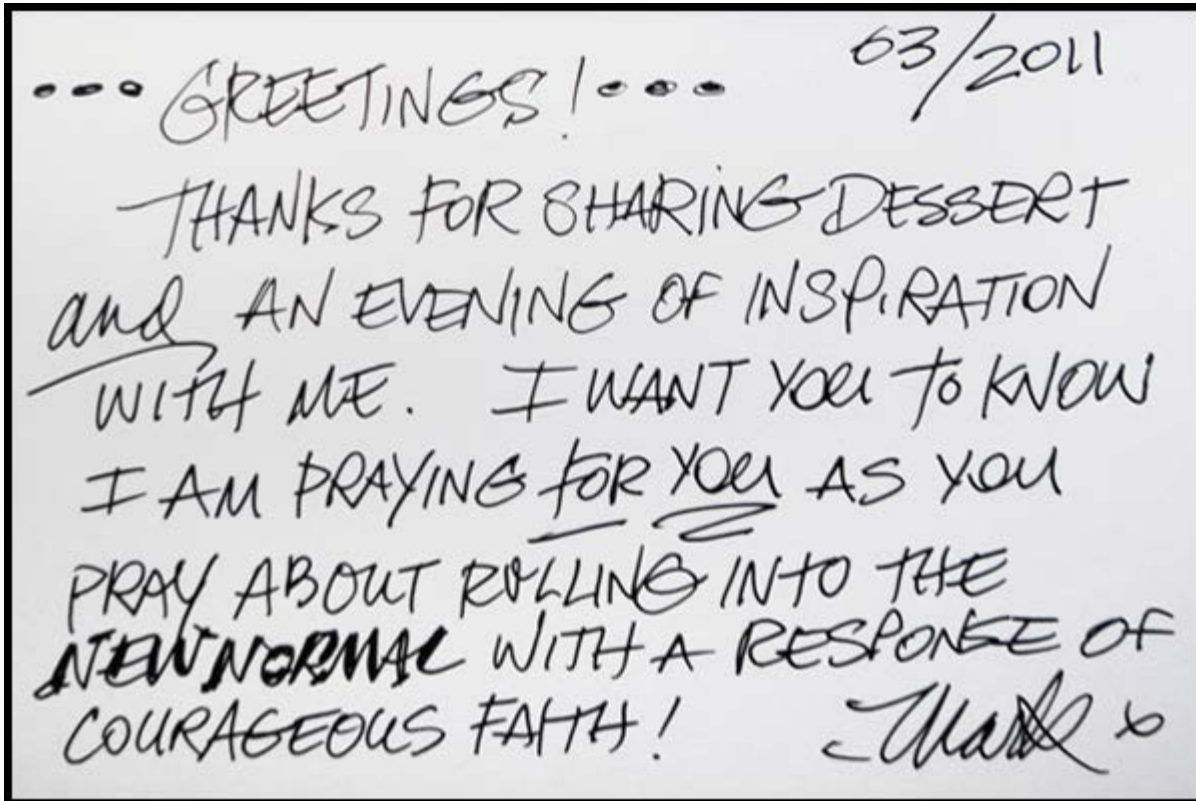 63/2011
... GREETINGS! ...
THANKS FOR SHARING DESSERT
and AN EVENING OF INSPIRATION
WITH ME. I WANT YOU TO KNOW
I AM PRAYING FOR YOU AS YOU
PRAY ABOUT ROLLING INTO THE
NEW NORMAL WITH A RESPONSE OF
COURAGEOUS FAITH!